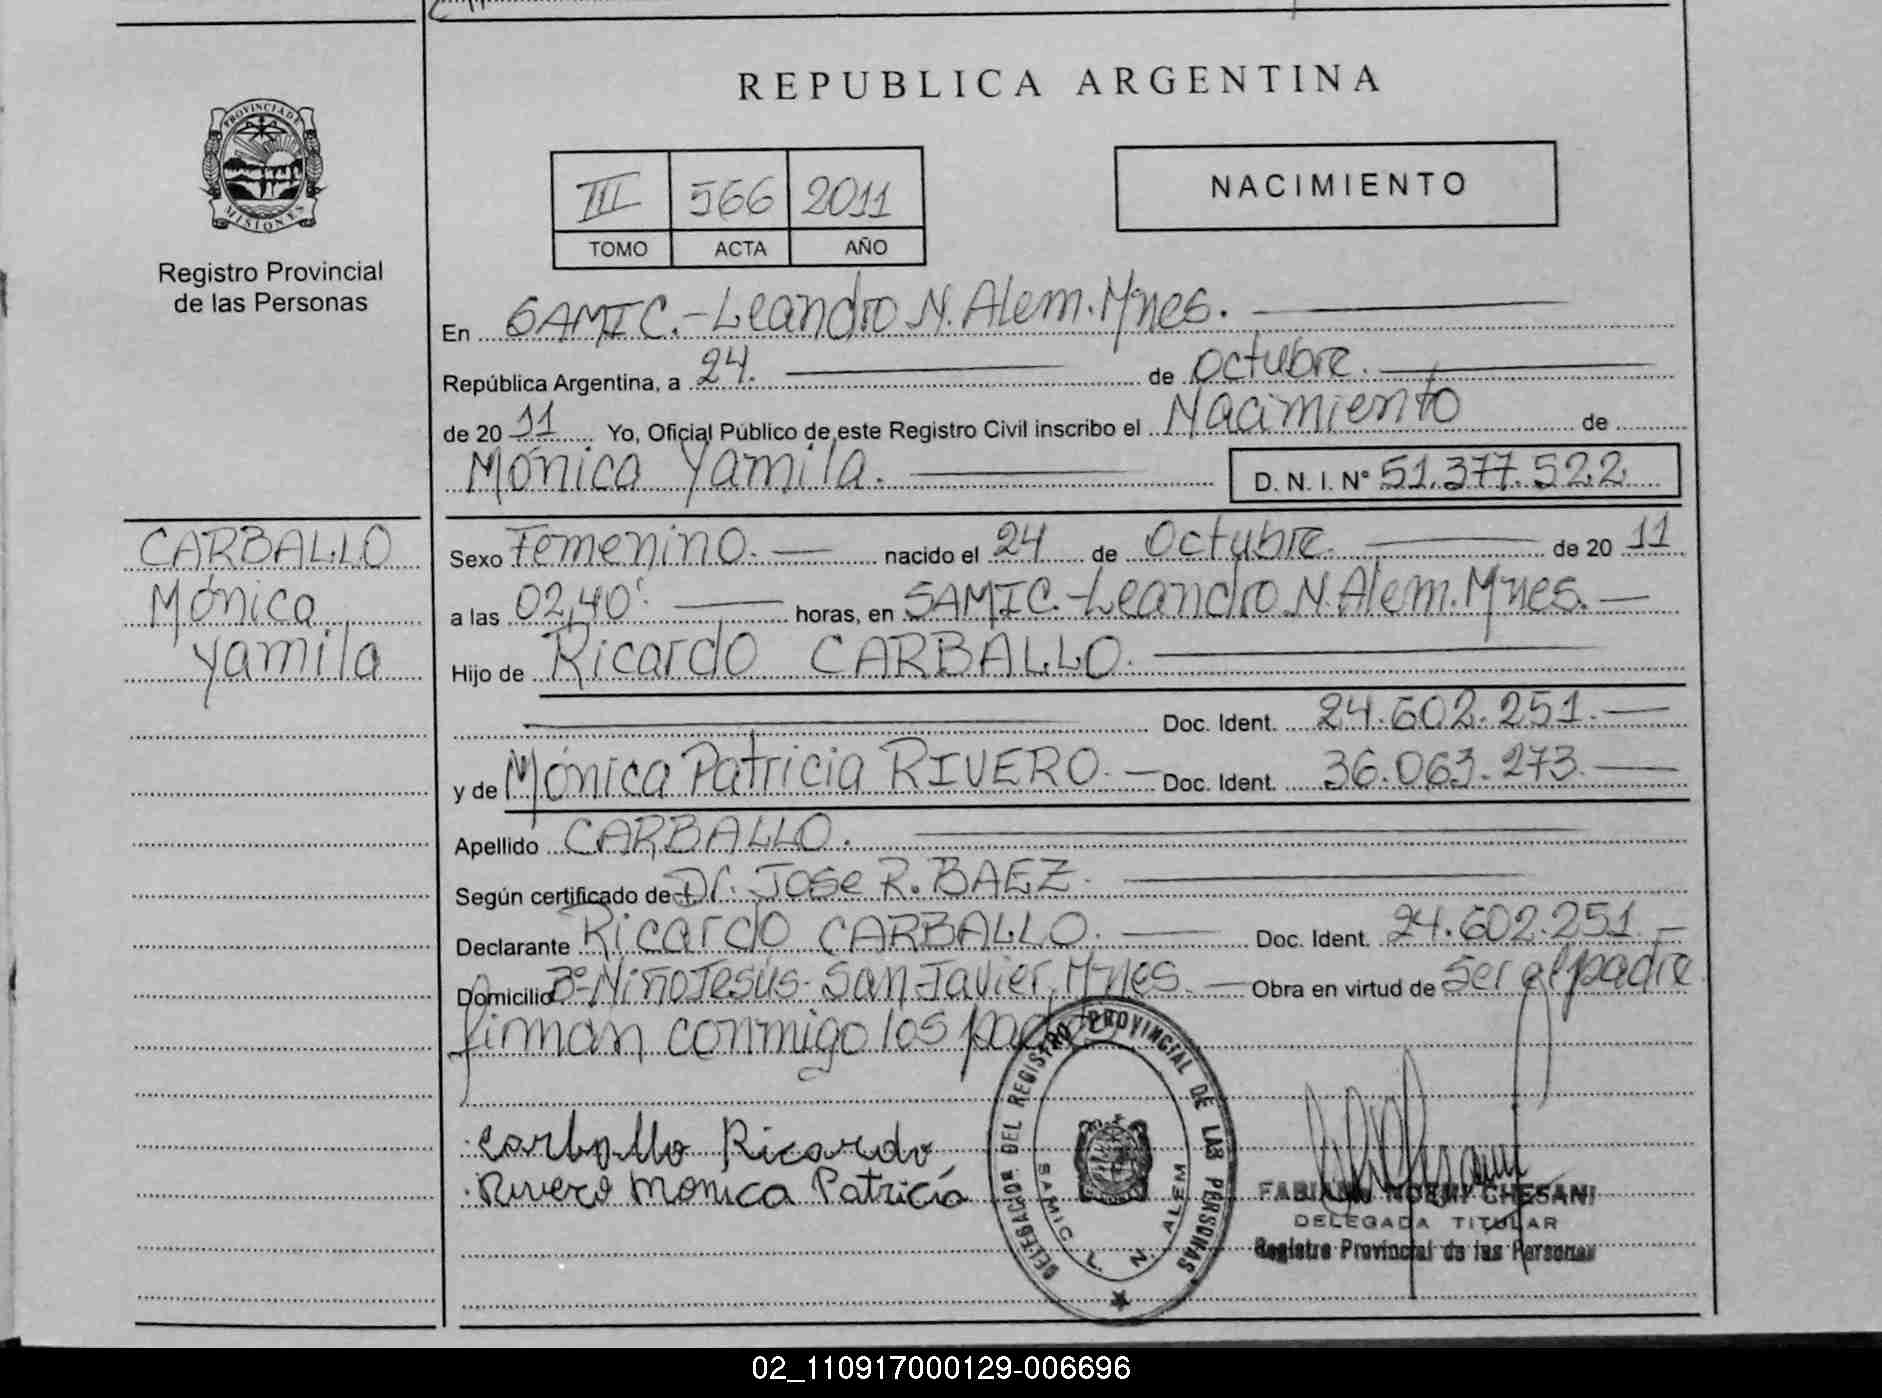 REPUBLICA ARGENTINA
PROVINCIA DE
MISIONES
Registro Provincial
de las Personas
III 566 2011
TOMO ACTA AÑO
NACIMIENTO
En SAMIC.-Leandro N. Alem. Mnes.
República Argentina, a 24. de octubre.
de 20 11 Yo, Oficial Público de este Registro Civil inscribo el Nacimiento de
Mónica Yamila. D. N. I. N° 51.377.522.
CARBALLO
Mónica
Yamila
Sexo Femenino. nacido el 24 de Octubre. de 20 11
a las 02,40' horas, en SAMIC.-Leandro N. Alem. Mnes.
Hijo de Ricardo CARBALLO.
Doc. Ident. 24.602.251.
y de Mónica Patricia RIVERO. Doc. Ident. 36.063.273.
Apellido CARBALLO.
Según certificado de Dr. Jose R. BAEZ.
Declarante Ricardo CARBALLO. Doc. Ident. 24.602.251.
Domicilio B° Niño Jesús- San Javier, Mnes. Obra en virtud de ser el padre
firman conmigo los padres
Carballo Ricardo
Rivero Monica Patricia
DELEGACION DEL REGISTRO PROVINCIAL DE LAS PERSONAS
SAMIC L. N. ALEM
FABIANA NOEMI CHESANI
DELEGADA TITULAR
Registro Provincial de las Personas
02_110917000129-006696